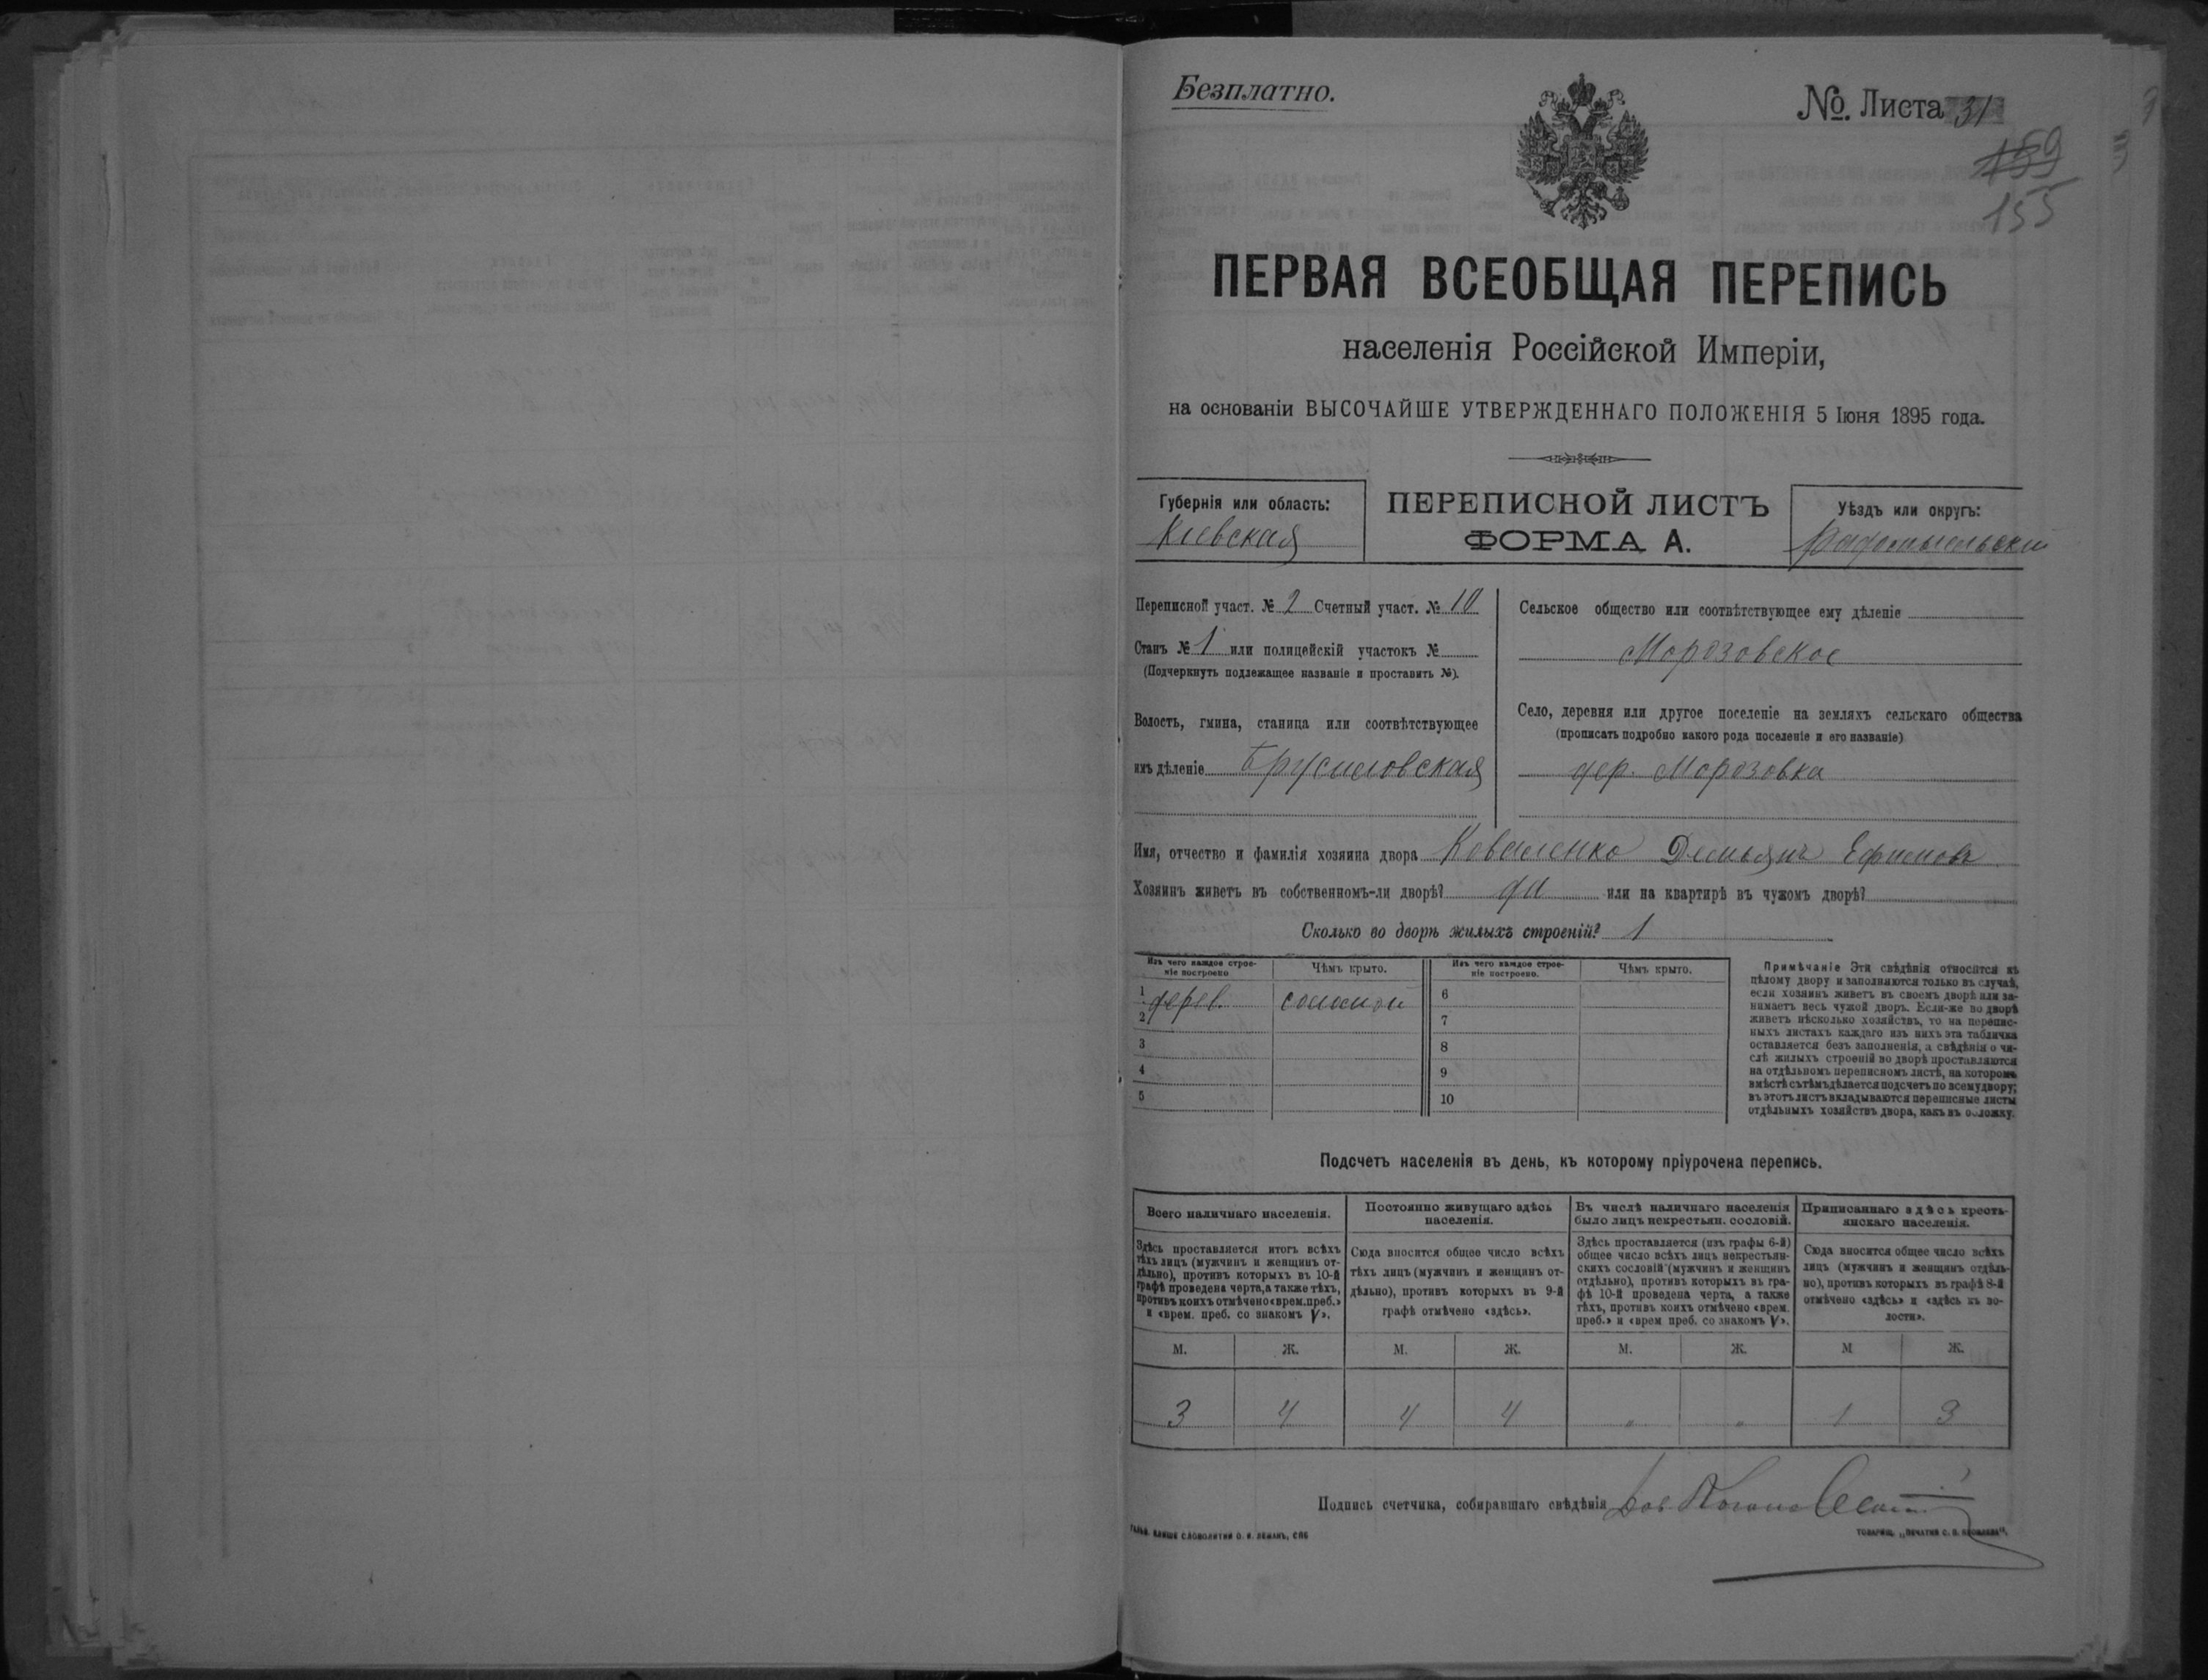 Безплатно.
№. Листа 31
159
155
ПЕРВАЯ ВСЕОБЩАЯ ПЕРЕПИСЬ
населенія Россійской Имперіи,
на основаніи ВЫСОЧАЙШЕ УТВЕРЖДЕННАГО ПОЛОЖЕНІЯ 5 Іюня 1895 года.
Губернія или область:
Кіевская
ПЕРЕПИСНОЙ ЛИСТЪ
ФОРМА А.
Уѣздъ или округъ:
Радомысльскій
Переписной участ. № 2 Счетный участ. № 10
Станъ № 1 или полицейскій участокъ №
(Подчеркнуть подлежащее названіе и проставить №).
Волость, гмина, станица или соотвѣтствующее
имъ дѣленіе Брусиловская
Сельское общество или соотвѣтствующее ему дѣленіе
Морозовское
Село, деревня или другое поселеніе на земляхъ сельскаго общества
(прописать подробно какого рода поселеніе и его названіе)
дер. Морозовка
Имя, отчество и фамилія хозяина двора Коваленко Демьянъ Ефимовъ
Хозяинъ живетъ въ собственномъ-ли дворѣ? да или на квартирѣ въ чужомъ дворѣ?
Сколько во дворѣ жилыхъ строеній? 1
Изъ чего каждое строе-
ніе построено
Чѣмъ крыто.
Изъ чего каждое строе-
ніе построено.
Чѣмъ крыто.
1 дерев. соломой
2
3
4
5
6
7
8
9
10
Примѣчаніе Эти свѣдѣнія относятся къ
цѣлому двору и заполняются только въ случаѣ,
если хозяинъ живетъ въ своемъ дворѣ или за-
нимаетъ весь чужой дворъ. Если-же во дворѣ
живетъ нѣсколько хозяйствъ, то на перепис-
ныхъ листахъ каждаго изъ нихъ эта табличка
оставляется безъ заполненія, а свѣдѣнія о чи-
слѣ жилыхъ строеній во дворѣ проставляются
на отдѣльномъ переписномъ листѣ, на которомъ
вмѣстѣ съ тѣмъ дѣлается подсчетъ по всему двору;
въ этотъ листъ вкладываются переписные листы
отдѣльныхъ хозяйствъ двора, какъ въ обложку.
Подсчетъ населенія въ день, къ которому пріурочена перепись.
Всего наличнаго населенія.
Постоянно живущаго здѣсь
населенія.
Въ числѣ наличнаго населенія
было лицъ некрестьян. сословій.
Приписаннаго здѣсь кресть-
янскаго населенія.
Здѣсь проставляется итогъ всѣхъ
тѣхъ лицъ (мужчинъ и женщинъ от-
дѣльно), противъ которыхъ въ 10-й
графѣ проведена черта, а также тѣхъ,
противъ коихъ отмѣчено «врем. преб.»
и «врем. преб. со знакомъ V».
Сюда вносится общее число всѣхъ
тѣхъ лицъ (мужчинъ и женщинъ от-
дѣльно), противъ которыхъ въ 9-й
графѣ отмѣчено «здѣсь».
Здѣсь проставляется (изъ графы 6-й)
общее число всѣхъ лицъ некрестьян-
скихъ сословій (мужчинъ и женщинъ
отдѣльно), противъ которыхъ въ гра-
фѣ 10-й проведена черта, а также
тѣхъ, противъ коихъ отмѣчено «врем.
преб.» и «врем преб. со знакомъ V».
Сюда вносится общее число всѣхъ
лицъ (мужчинъ и женщинъ отдѣль-
но), противъ которыхъ въ графѣ 8-й
отмѣчено «здѣсь» и «здѣсь къ во-
лости».
М. Ж. М. Ж. М. Ж. М Ж.
3 4 4 4 " " 1 3
Подпись счетчика, собиравшаго свѣдѣнія
ГАЛЬВ. КЛИШЕ СЛОВОЛИТНИ О. И. ЛЕМАНЪ, СПБ
ТОВАРИЩ. „ПЕЧАТНЯ С. П. ЯКОВЛЕВА".